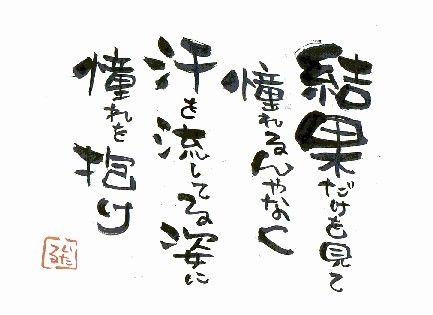 結果だけを見て
憧れるんやなく
汗を流してる姿に
憧れを抱け